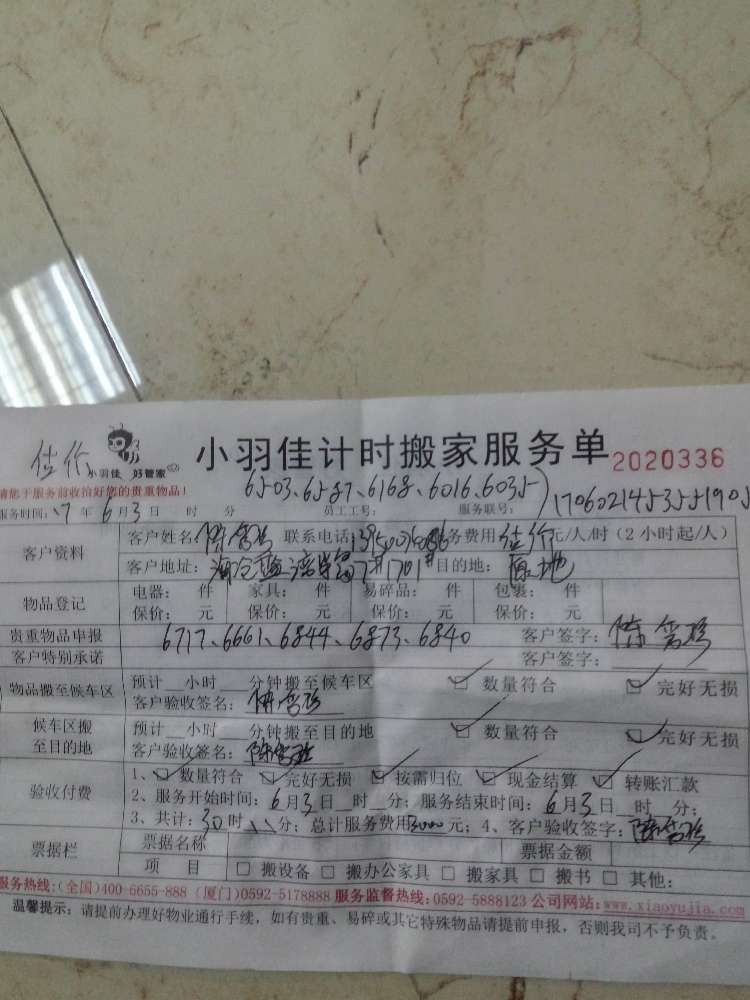 估价 小羽佳 好管家 小羽佳计时搬家服务单 2020336
请您于服务前收拾好您的贵重物品! 6503、6587、6168、6016、6035
服务时间:17年6月3日 时 分 员工工号: 服务联号: 1706021453551905
客户资料 客户姓名 联系电话 服务费用 估价 元/人/时(2小时起/人)
客户地址: 目的地: 原地
物品登记 电器: 件 家具: 件 易碎品: 件 包裹: 件
保价: 元 保价: 元 保价: 元 保价: 元
贵重物品申报 6717、6661、6844、6873、6840 客户签字:
客户特别承诺 客户签字:
物品搬至候车区 预计__小时__分钟搬至候车区 数量符合 完好无损
客户验收签名:
候车区搬至目的地 预计__小时__分钟搬至目的地 数量符合 完好无损
客户验收签名:
验收付费 1、数量符合 完好无损 按需归位 现金结算 转账汇款
2、服务开始时间:6月3日__时__分;服务结束时间:6月3日__时__分;
3、共计:30时 分;总计服务费用3000元;4、客户验收签字:
票据栏 票据名称 票据金额
项 目 □ 搬设备 □ 搬办公家具 □ 搬家具 □ 搬书 □ 其他:
服务热线:(全国)400-6655-888 (厦门)0592-5178888 服务监督热线:0592-5888123 公司网站:www.xiaoyujia.com
温馨提示:请提前办理好物业通行手续,如有贵重、易碎或其它特殊物品请提前申报,否则我司不予负责。